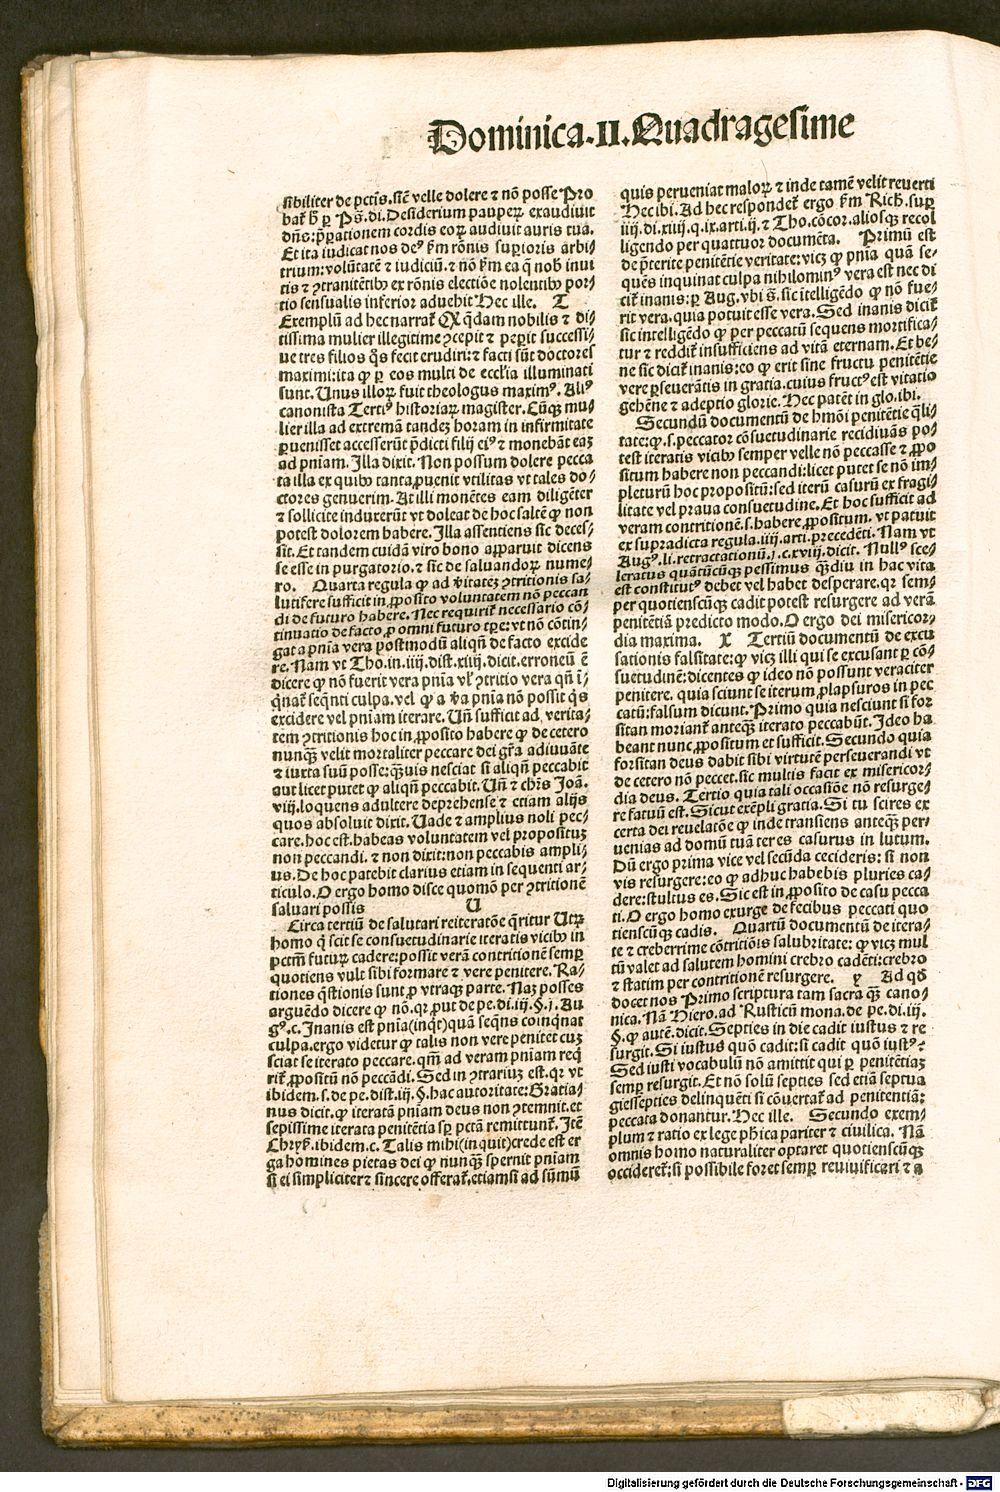 Dominica.II.Quadragesime
sibiliter de pctīs.sicē velle dolere ⁊ nō posse Pro
bat̄ h̄ ꝑ Ps̄.di.Desiderium pauperꝝ exaudiuit
dn̄s:p̄parationem cordis eoꝝ audiuit auris tua.
Et ita iudicat nos deꝰ km̄ rōnis superioris arbi⸗
trium:volūtatē ⁊ iudiciū.⁊ nō km̄ ea q̄ nob̄ inui
tis ⁊ ꝯtranitētibꝰ ex rōnis electiōe nolentibꝰ por⸗
tio sensualis inferior aduehit Hec ille. T
Exemplū ad hec narrat̄ Qꝙ q̄dam nobilis ⁊ di⸗
tissima mulier illegitime ꝯcepit ⁊ peperit successi⸗
ue tres filios q̄s fecit erudiri:⁊ facti sūt doctores
maximi:ita ꝙ ꝑ eos multi de eccl'ia illuminati
sunt.Unus illoꝝ fuit theologus maximꝰ.Aliꝰ
canonista Tertiꝰ historiaꝝ magister.Cūꝗꝫ mu⸗
lier illa ad extremā tandeꝫ horam in infirmitate
ꝑuenisset accesserūt p̄dicti filij eiꝰ ⁊ monebāt eaꝫ
ad pniam.Illa dixit.Non possum dolere pecca
ta illa ex quibꝰ tanta ꝓuenit vtilitas vt tales do⸗
ctores genuerim.At illi monētes eam diligēter
⁊ sollicite induxerūt vt doleat de hoc saltē ꝙ non
potest dolorem habere.Illa assentiens sic deces⸗
sit.Et tandem cuidā viro bono apparuit dicens
se esse in purgatorio.⁊ sic de saluandoꝝ nume⸗
ro. Quarta regula ꝙ ad v̄itateꝫ ꝯtritionis sa⸗
lutifere sufficit in ꝓposito voluntatem nō peccan
di de futuro habere.Nec requirit̄ necessario cō⸗
tinuatio de facto ꝓ omni futuro tꝑe:vt nō cōtin⸗
gat a pnia vera postmodū aliqn̄ de facto excide
re.Nam vt Tho.in.iiij.dist.xiiij.dicit.erroneū ē
dicere ꝙ nō fuerit vera pnia vl' ꝯtritio vera qn̄ ī⸗
q̄nat̄ seq̄nti culpa.vel ꝙ a v̄a pnia nō possit q̄s
excidere vel pniam iterare.Un̄ sufficit ad verita⸗
tem ꝯtritionis hoc in ꝓposito habere ꝙ de cetero
nunꝗ̄ velit mortaliter peccare dei gr̄a adiuuāte
⁊ iuxta suū posse:ꝗ̄uis nesciat si aliqn̄ peccabit
aut licet putet ꝙ aliqn̄ peccabit.Un̄ ⁊ chrs̄ Joā.
viij.loquens adultere deprehense ⁊ etiam alijs
quos absoluit dixit.Uade ⁊ amplius noli pec⸗
care.hoc est.habeas voluntatem vel propositūꝫ
non peccandi.⁊ non dixit:non peccabis ampli⸗
us.De hoc patebit clarius etiam in sequenti ar⸗
ticulo.O ergo homo disce quomō per ꝯtritionē
saluari possis U
Circa tertiū de salutari reiteratōe q̄ritur Utrꝫ
homo q̄ scit se consuetudinarie iteratis vicibꝰ in
pctm̄ futuꝝ cadere:possit verā contritionē semꝑ
quotiens vult sibi formare ⁊ vere penitere.Ra⸗
tiones q̄stionis sunt ꝓ vtraqꝫ parte.Naꝫ posses
arguēdo dicere ꝙ nō.qꝛ ꝓut de pe.di.iij.§.j.Au
gꝰ.c.Inanis est pnia(inq̄t)quā seq̄ns coinq̄nat
culpa.ergo videtur ꝙ talis non vere penitet cuꝫ
sciat se iterato peccare.qm̄ ad veram pniam req̄
rit̄ ꝓpositū nō peccādi.Sed in ꝯtrariuꝫ est.qꝛ vt
ibidem.s.de pe.dist.iij.§.hac autoritate:Gratia⸗
nus dicit.ꝙ iteratā pniam deus non ꝯtemnit.et
sepissime iterata penitētia sꝑ pctā remittunt̄.Itē
Chryẜ.ibidem.c.Talis mihi(inquit)crede est er
ga homines pietas dei ꝙ nunꝗ̄ spernit pniam
si ei simpliciter⁊ sincere offerat̄.etiamsi ad sūmū
quis perueniat maloꝝ ⁊ inde tamē velit reuerti
Hec ibi.Ad hec respondet̄ ergo km̄ Rich̄.super
iiij.di.xiiij.q.ix.arti.ij.⁊ Tho.cōcor.aliosqꝫ recol
ligendo per quattuor documēta. Primū est
de p̄terite penitētie veritate:vicꝫ ꝙ pnia quā se⸗
quēs inquinat culpa nihilominꝰ vera est nec di
cit̄ inanis:ꝑ Aug.vbi s̄.sic ītelligēdo ꝙ nō fue⸗
rit vera.quia potuit esse vera.Sed inanis dicit̄
sic intelligēdo ꝙ per peccatū sequens mortifica⸗
tur ⁊ reddit̄ insufficiens ad vitā eternam.Et be⸗
ne sic dicit̄ inanis:eo ꝙ erit sine fructu penitētie
vere ꝑseuerātis in gratia.cuius fructꝰ est vitatio
gehēne ⁊ adeptio glorie.Hec patēt in glo.ibi.
Secundū documentū de hmōi penitētie q̄li
tate:ꝙ.s.peccator cōsuetudinarie recidiuās po⸗
test iteratis vicibꝰ semper velle nō peccasse ⁊ ꝓpo
situm habere non peccandi:licet putet se nō im⸗
pleturū hoc propositū:sed iterū casurū ex fragi
litate vel praua consuetudine.Et hoc sufficit ad
veram contritionē.s.habere ꝓpositum.vt patuit
ex supradicta regula.iiij.arti.precedēti.Nam vt
Augꝰ.li.retractationū.j.c.xviij.dicit.Nullꝰ sce⸗
leratus quātūcūqꝫ pessimus ꝗ̄diu in hac vita
est constitutꝰ debet vel habet desperare.qꝛ sem⸗
per quotienscūqꝫ cadit potest resurgere ad verā
penitētiā predicto modo.O ergo dei misericor⸗
dia maxima. X Tertiū documentū de excu
sationis falsitate:ꝙ vicꝫ illi qui se excusant ꝑ cō⸗
suetudinē:dicentes ꝙ ideo nō possunt veraciter
penitere.quia sciunt se iterum ꝓlapsuros in pec
catū:falsum dicunt.Primo quia nesciunt si for
sitan moriant̄ anteꝗ̄ iterato peccabūt.Ideo ha
beant nunc ꝓpositum et sufficit.Secundo quia
forsitan deus dabit sibi virtutē perseuerandi vt
de cetero nō peccet.sic multis facit ex misericor⸗
dia deus.Tertio quia tali occasiōe nō resurge⸗
re fatuū est.Sicut exēpli gratia.Si tu scires ex
certa dei reuelatōe ꝙ inde transiens anteꝗ̄ per⸗
uenias ad domū tuā ter es casurus in lutum.
Dū ergo prima vice vel secūda cecideris: si non
vis resurgere:eo ꝙ adhuc habebis pluries ca⸗
dere:stultus es.Sic est in ꝓposito de casu pecca
ti.O ergo homo exurge de fecibus peccati quo
tienscūqꝫ cadis. Quartū documentū de itera⸗
te ⁊ creberrime cōtritiōis salubritate:ꝙ vicꝫ mul
tū valet ad salutem homini crebro cadēti:crebro
⁊ statim per contritionē resurgere. y Ad qd̄
docet nos Primo scriptura tam sacra ꝗ̄ cano⸗
nica.Nā Hiero.ad Rusticū mona.de pe.di.iij.
§.ꝙ autē.dicit.Septies in die cadit iustus ⁊ re
surgit.Si iustus quō cadit:si cadit quō iustꝰ:
Sed iusti vocabulū nō amittit qui ꝑ penitētiaꝫ
semꝑ resurgit.Et nō solū septies sed etiā septua
giessepties delinquēti si cōuertat̄ ad penitentiā:
peccata donantur.Hec ille. Secundo exem⸗
plum ⁊ ratio ex lege ph̄ica pariter ⁊ ciuilica.Nā
omnis homo naturaliter optaret quotienscūqꝫ
occideret̄:si possibile foret semꝑ reuiuificari ⁊ a
Digitalisierung gefördert durch die Deutsche Forschungsgemeinschaft - DFG